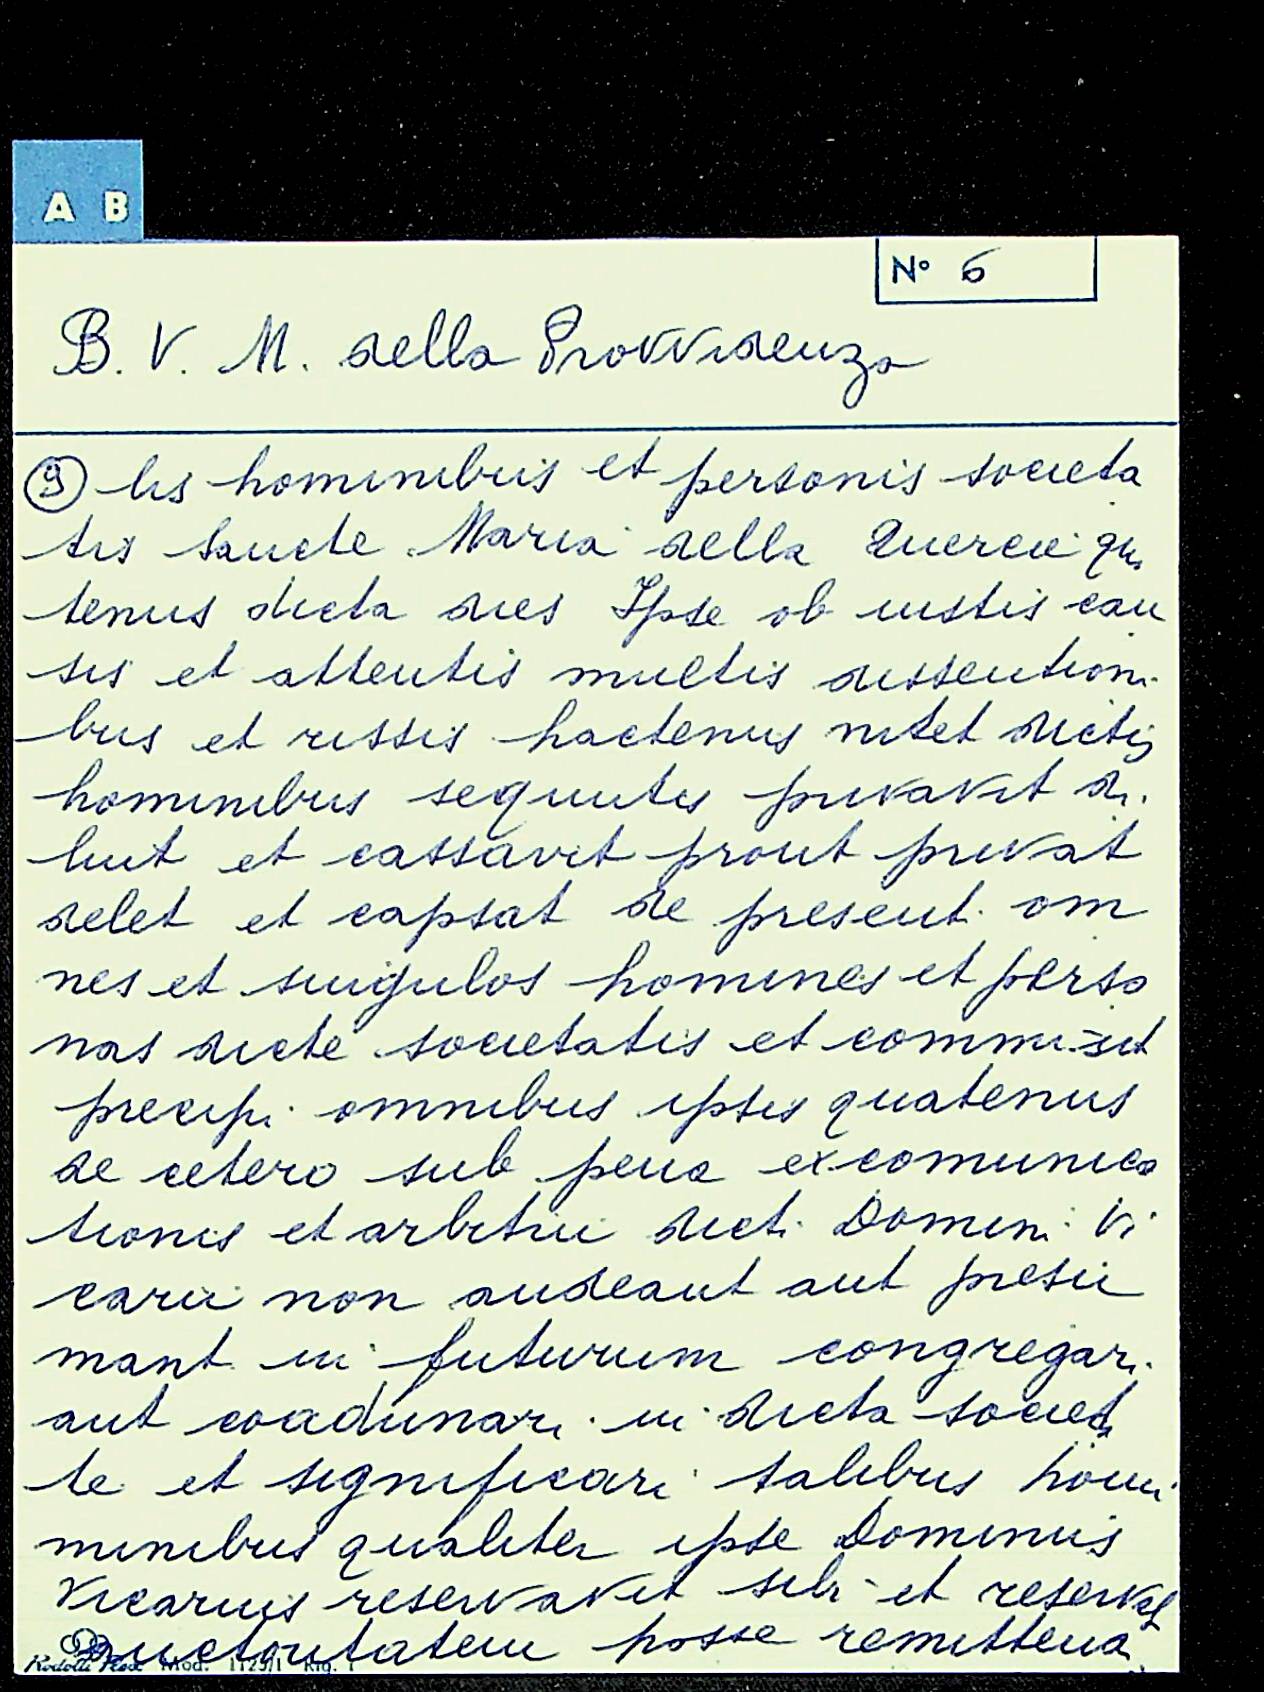 A B
N° 6
B. V. M. della Provvidenza
9 lis hominibus et personis societa
tis Sancte Maria della Quercie qu
tenus dicta dies Ipse ob iustis cau
sis et attentis multis dissentioni
bus et rissis hactenus dictis
hominibus sequutis privavit di
luit et cassavit prout privat
delet et capsat de presenti om
nes et singulos homines et perso
nas dicte societatis et commisit
precipi omnibus ipsis quatenus
de cetero sub pena excomunica
tionis et arbitrii dicti Domini Vi
carii non audeant aut presu
mant in futurum congregari
aut coadunari in dicta societ
te et significari talibus homi
minibus qualiter ipse Dominus
Vicarius reservavit sibi et reservat
auctoritatem posse remittend
Mod. 1125/1 Rig. 1